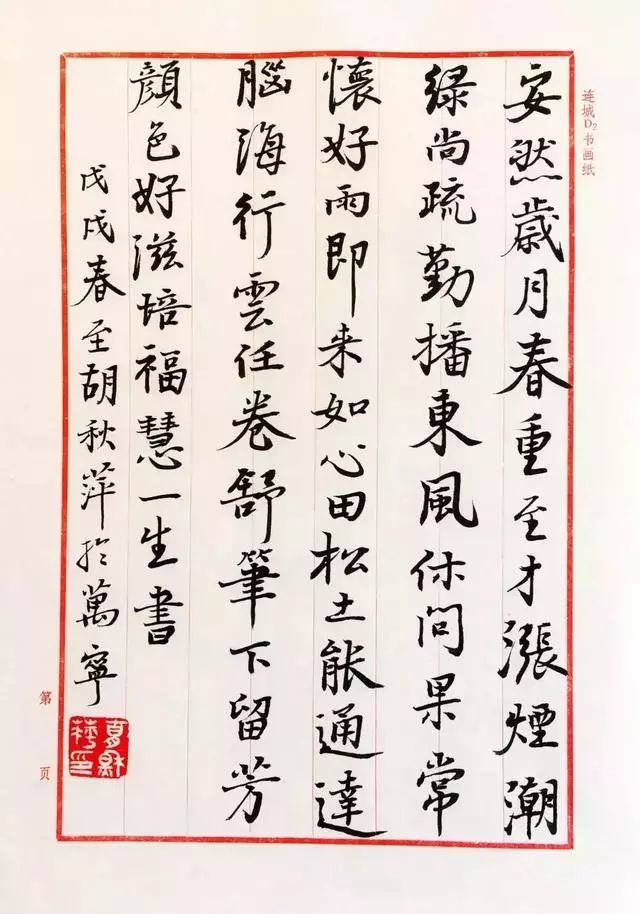 连城D2书画纸
安然歲月春重至才漲煙潮
绿尚疏勤播東風休問果常
懷好雨即来如心田松土能通達
腦海行雲任卷舒筆下留芳
顔色好滋培福慧一生書
戊戌春至胡秋萍於萬寧
第 页